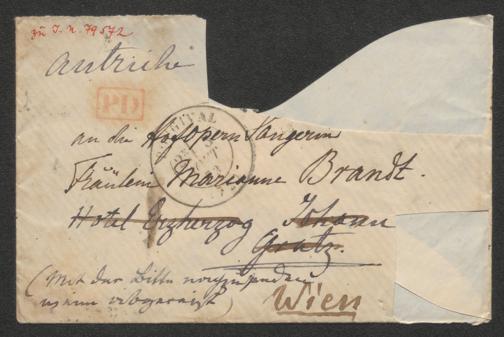 zu I. N. 79572
Autriche
PD
an die Hofopern Sängerin
Fräulein Marianne Brandt.
Hotel Erzherzog Johann
Graetz.
(Mit der Bitte
wenn abgereist)
Wien